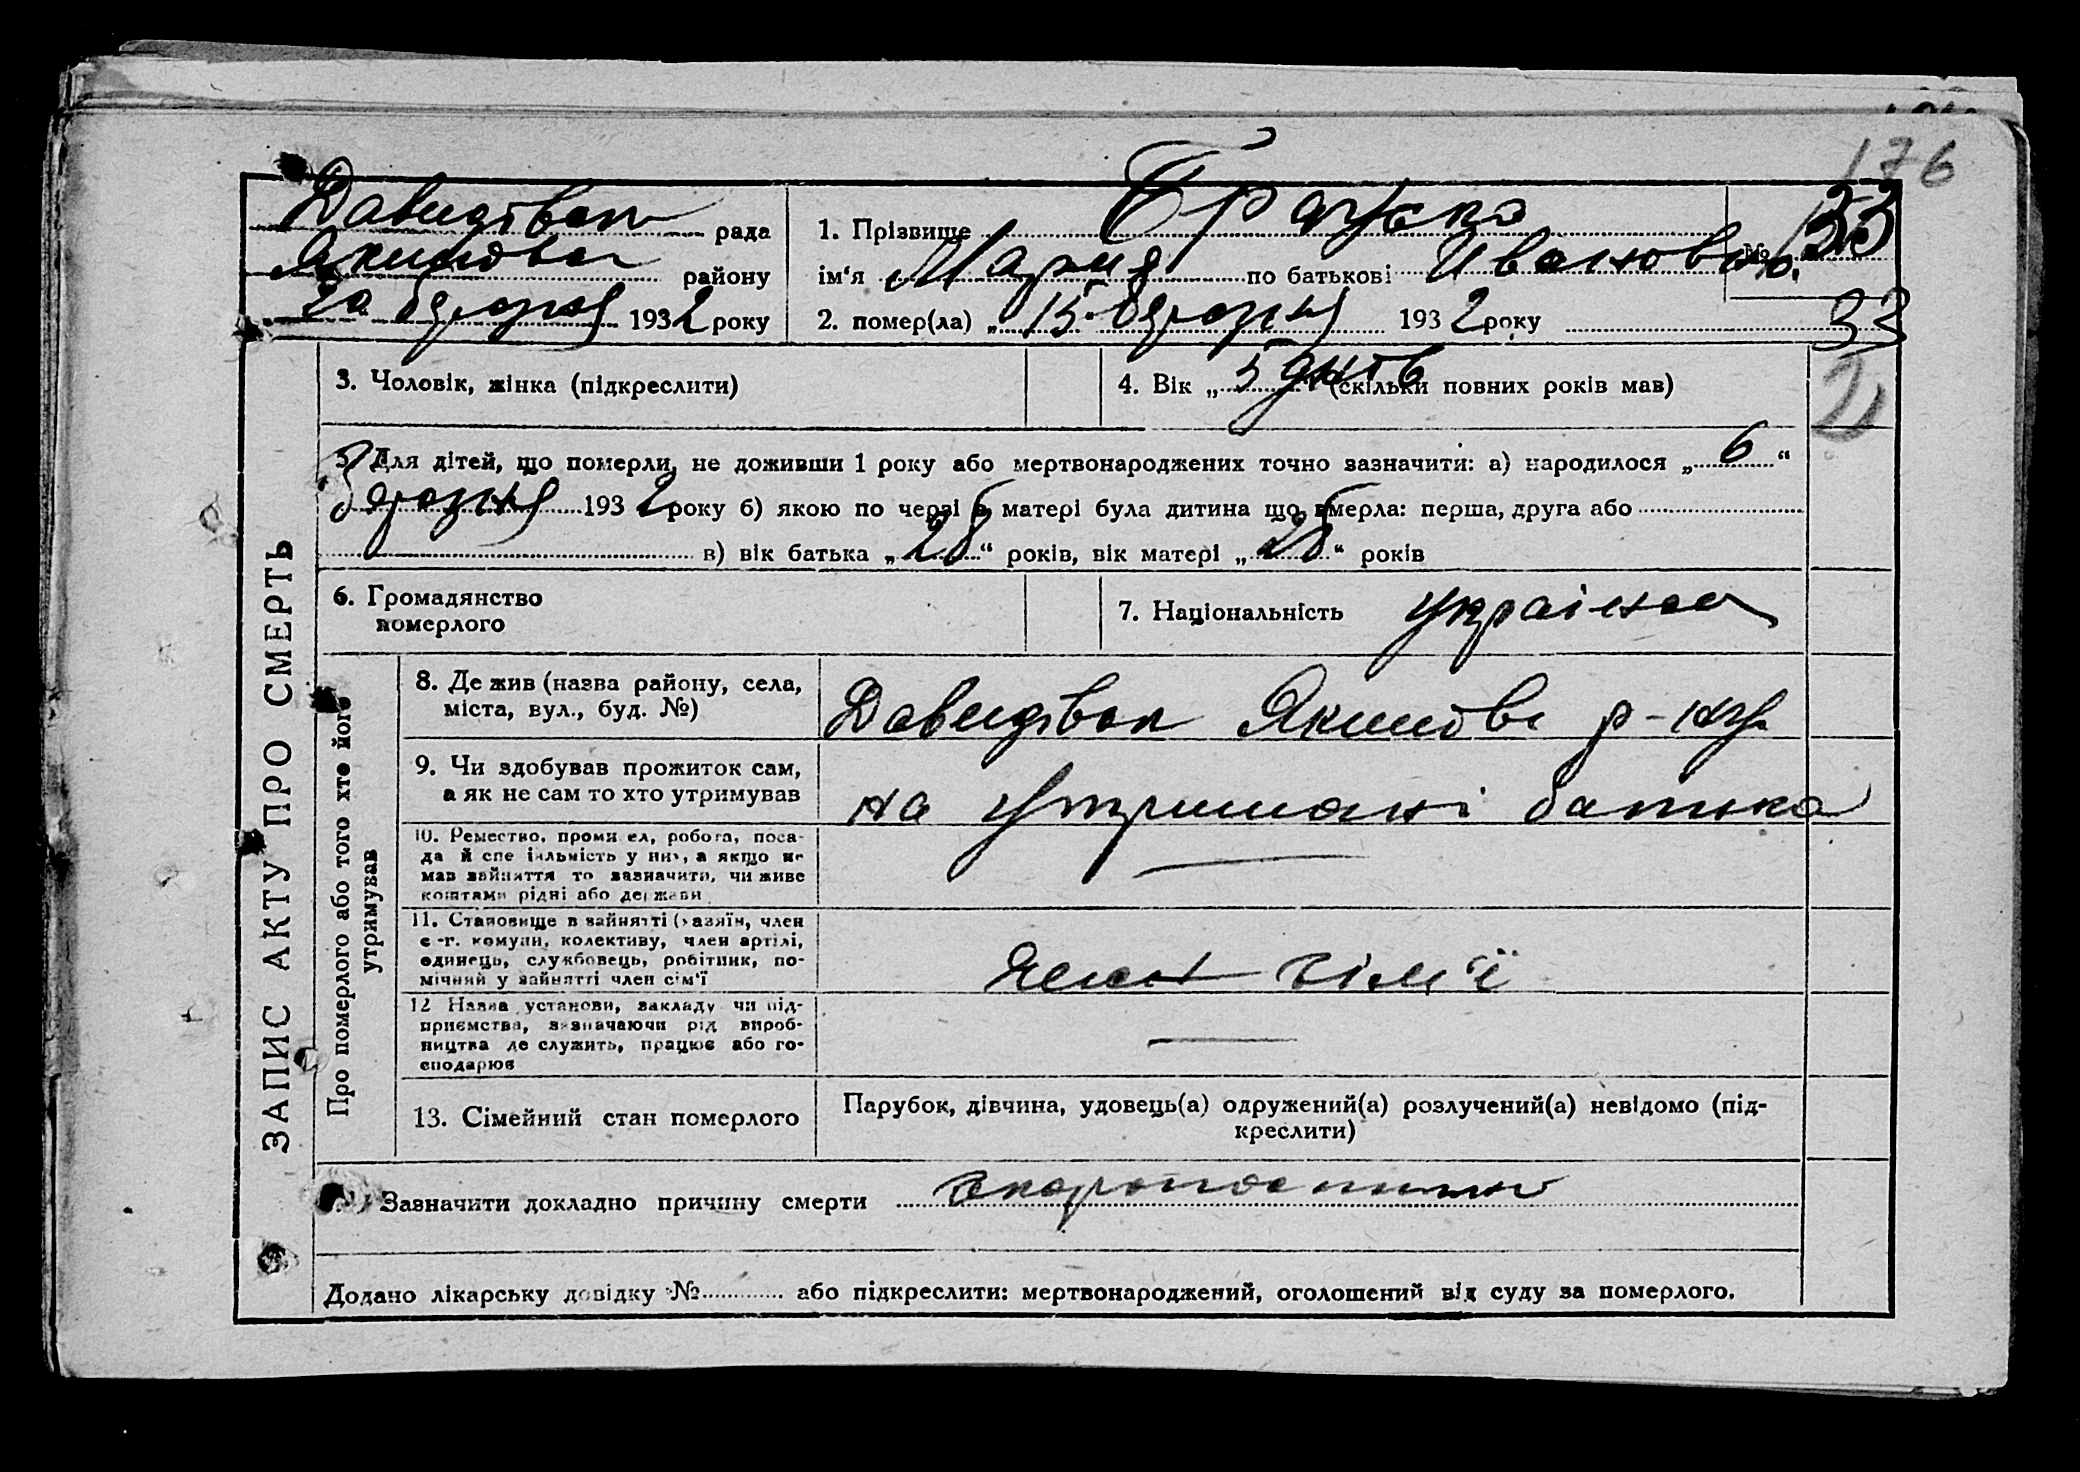 176
Давидівсь рада
Якимовсь району
20 березня 1932 року
1. Прізвище
№ 33
ім'я Мария по батькові Ивановна
2. помер(ла) „15" березня 1932 року
33
3. Чоловік, жінка (підкреслити)
4. Вік „5 днів" (скільки повних років мав)
2
5. Для дітей, що померли, не доживши 1 року або мертвонароджених точно зазначити: а) народилося „6"
березня 1932 року б) якою по черзі в матері була дитина що вмерла: перша, друга або
в) вік батька „28" років, вік матері „28" років
6. Громадянство
померлого
7. Національність українка
ЗАПИС АКТУ ПРО СМЕРТЬ
Про померлого або того хто його
утримував
8. Де жив (назва району, села,
міста, вул., буд. №)
Давидівсь Якимовс р-ну
9. Чи здобував прожиток сам,
а як не сам то хто утримував
на утриманні батька
10. Ремество, промисел, робота, поса-
да й спеціяльність у них, а якщо не
мав зайняття то зазначити, чи живе
коштами рідні або держави
11. Становище в зайнятті (хазяїн, член
с.-г. комуни, колективу, член артілі,
одинець, службовець, робітник, по-
мічний у зайнятті член сім'ї
член сім'ї
12 Назва установи, закладу чи під-
приємства, зазначаючи рід вироб-
ництва де служить, працює або го-
сподарює
13. Сімейний стан померлого
Парубок, дівчина, удовець(а) одружений(а) розлучений(а) невідомо (під-
креслити)
Зазначити докладно причину смерти
Додано лікарську довідку № або підкреслити: мертвонароджений, оголошений від суду за померлого.